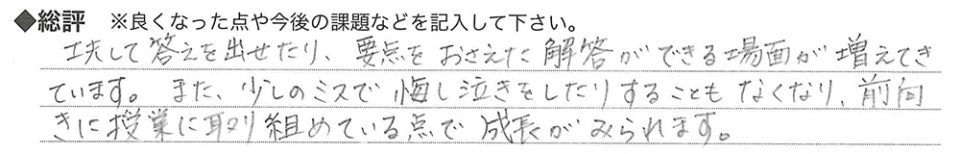 ◆総評 ※良くなった点や今後の課題などを記入して下さい。
工夫して答えを出せたり、要点をおさえた解答ができる場面が増えてき
ています。また、少しのミスで悔し泣きをしたりすることもなくなり、前向
きに授業に取り組めている点で成長がみられます。